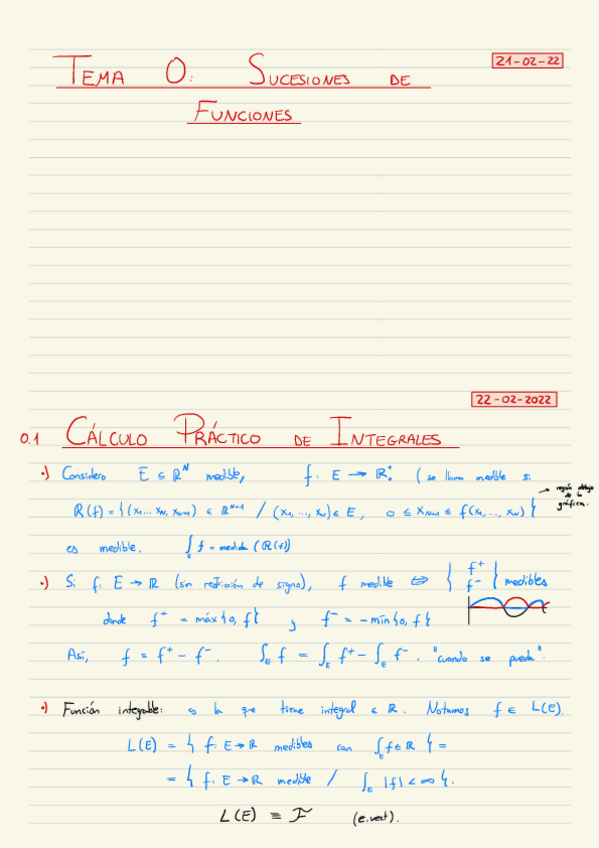 21-02-22
TEMA 0: SUCESIONES DE
FUNCIONES
22-02-2022
0.1 CÁLCULO PRÁCTICO DE INTEGRALES
•) Considero E ⊆ ℝᴺ medible, f: E → ℝ₀⁺ (se llama medible si
R(f) = {(x₁, ..., x_N, x_{N+1}) ∈ ℝᴺ⁺¹ / (x₁, ..., x_N) ∈ E, 0 ≤ x_{N+1} ≤ f(x₁, ..., x_N)}
→ región debajo
de la
gráfica.
es medible. ∫_E f = medida (R(f))
•) Si f: E → ℝ (sin restricción de signo), f medible ⇔ { f⁺ f⁻ } medibles
donde f⁺ = máx{0, f} y f⁻ = -mín{0, f}
Así, f = f⁺ - f⁻. ∫_E f = ∫_E f⁺ - ∫_E f⁻. "cuando se pueda".
•) Función integrable: es la que tiene integral ∈ ℝ. Notamos f ∈ L(E).
L(E) = { f: E → ℝ medibles con ∫_E f ∈ ℝ } =
= { f: E → ℝ medible / ∫_E |f| < ∞ }.
L(E) ≡ ℱ (e.vect).